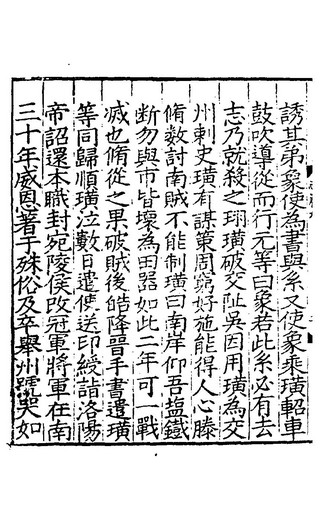 誘其弟象使為書與系又使象乘璜軺車
鼓吹導從而行元等曰象若此系必有去
志乃就殺之珝璜破交趾吳因用璜為交
州刺史璜有謀策周窮好施能得人心滕
脩數討南賊不能制璜曰南岸仰吾鹽鐵
斷勿與市皆壞為田器如此二年可一戰
滅也脩從之果破賊後皓降晉手書遣璜
等同歸順璜泣數日遣使送印綬詣洛陽
帝詔還本職封宛陵侯改冠軍將軍在南
三十年威恩著于殊俗及卒舉州號哭如